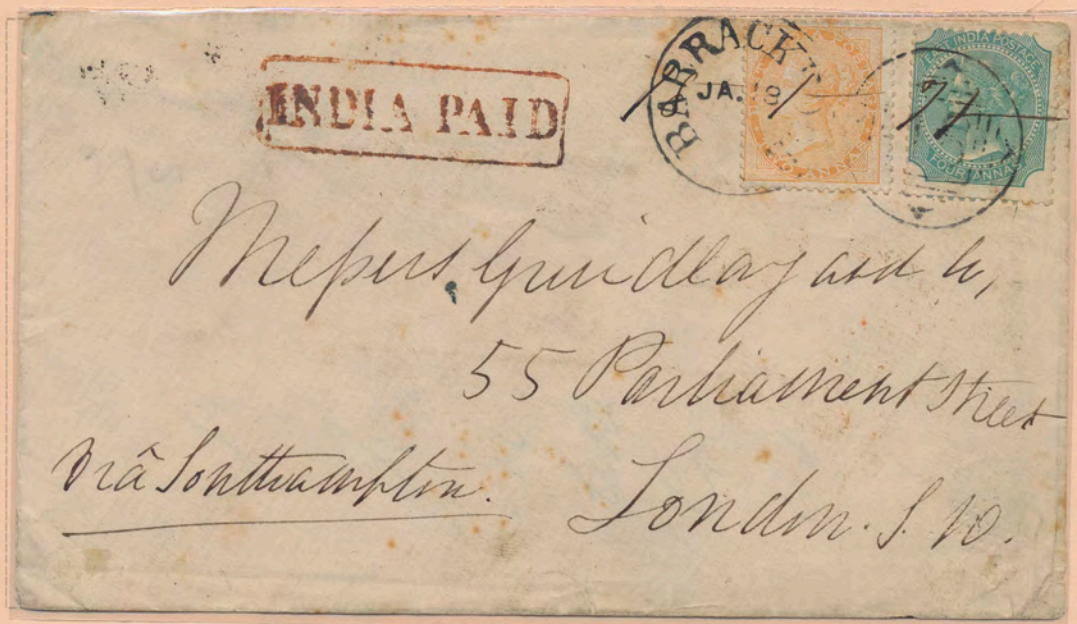 INDIA PAID
BARRACK
JA. 18
EAST INDIA POSTAGE
TWO ANNAS
FOUR ANNAS
Messrs Grindlay and Co,
55 Parliament Street
London. S. W.
Viâ Southampton.